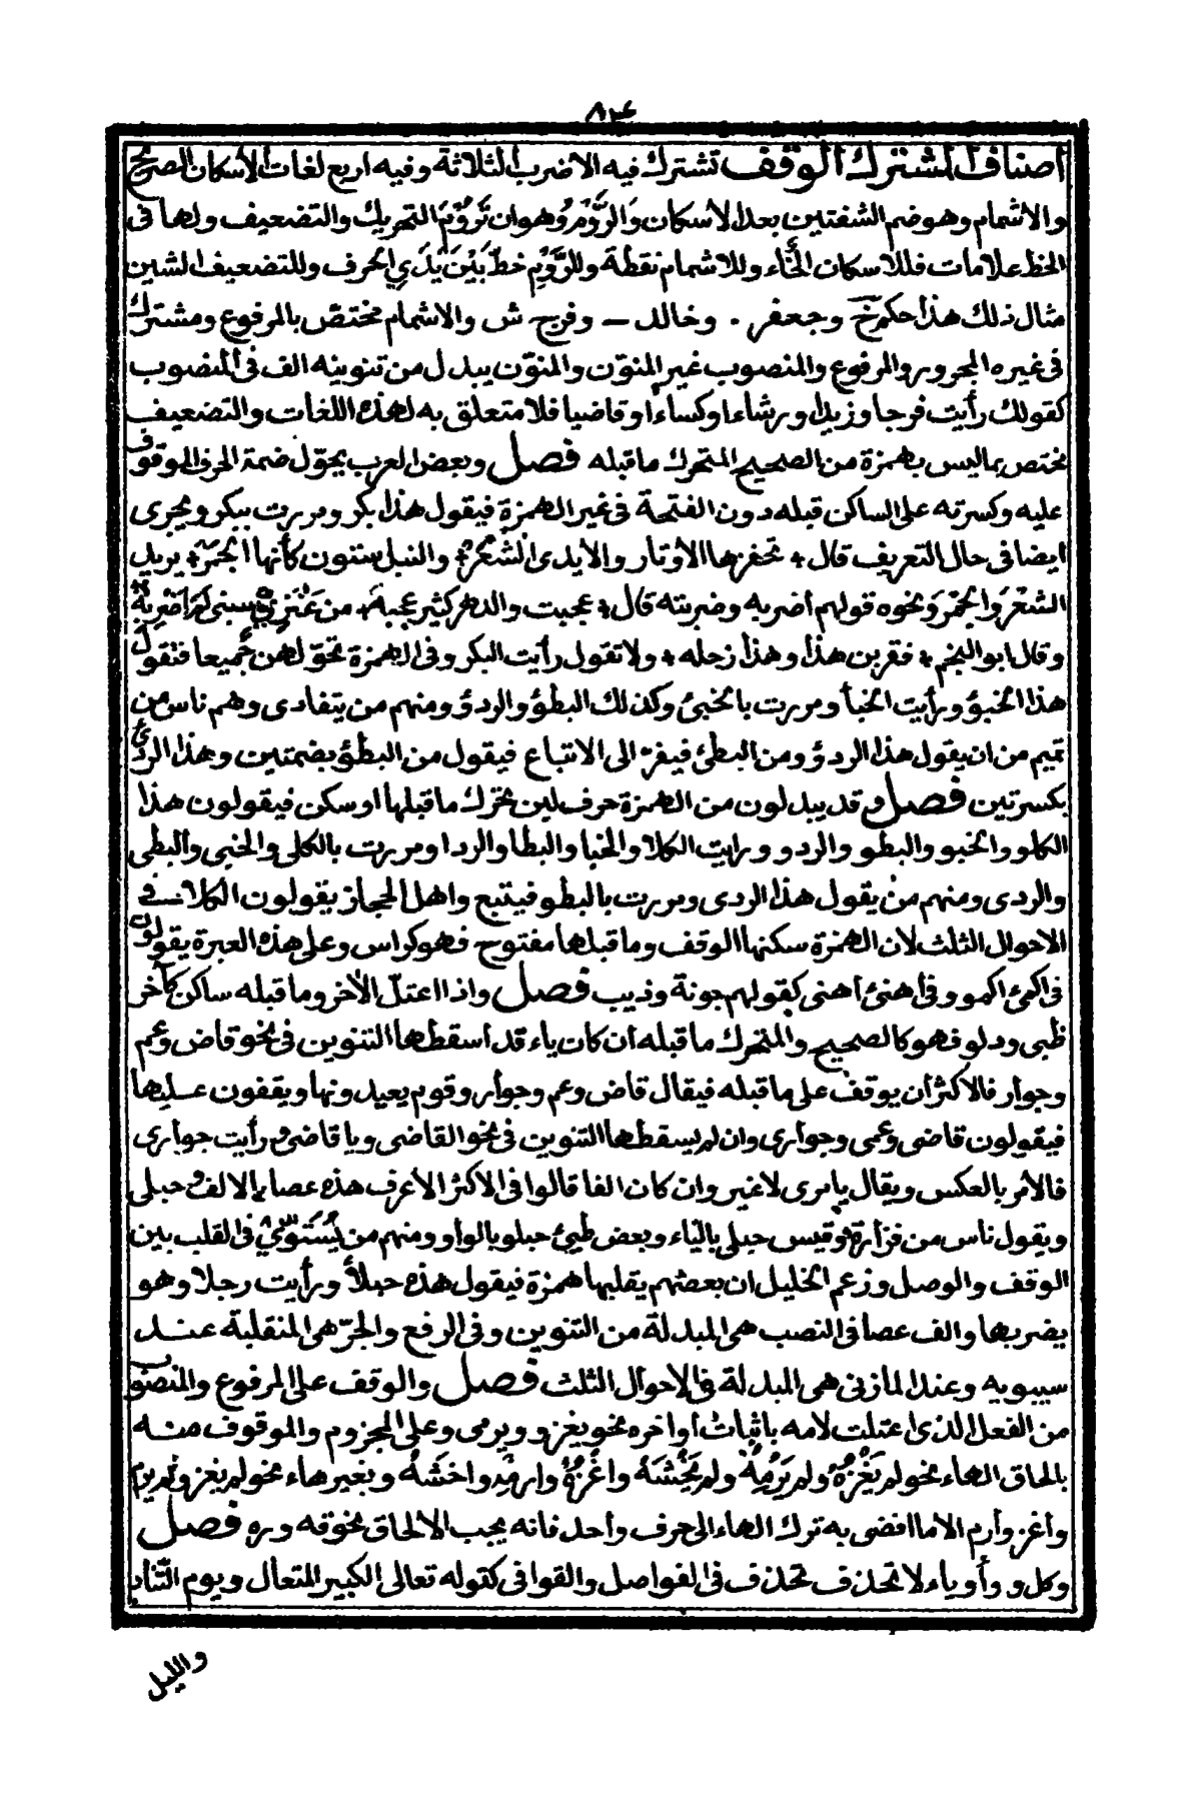 ٨٣
أصناف المشترك الوقف تشترك فيه الاضرب الثلاثة وفيه اربع لغات الأسكان الصريح
والاشمام وهو ضم الشفتين بعد الأسكان وَالرَّوْمُ وهو ان تَرُوْمَ التحريك والتضعيف ولها فى
الخط علامات فللاسكان الخَاء وللاشمام نقطة وللرَّوْمِ خطّ بَيْنَ يَدَيِ الحرف وللتضعيف الشين
مثال ذلك هذا حكم خ وجعفر . وخالد ـــ وفرج ش والاشمام مختصّ بالمرفوع ومشترك
فى غيره المجرور والمرفوع والمنصوب غير المنوّن والمنوّن يبدل من تنوينه الف فى المنصوب
كقولك رأيت فرجا وزيدا ورشاءا وكساءا وقاضيا فلا متعلق به لهذه اللغات والتضعيف
مختص بما ليس بهمزة من الصحيح المتحرك ما قبله فصل وبعض العرب يحوّل ضمة الحرف الموقوف
عليه وكسرته على الساكن قبله دون الفتحة فى غير الهمزة فيقول هذا بكر ومررت ببكر ويجرى
ايضا فى حال التعريف قال * تحفزها الأوتار والأيدى الشُعُرْ * والنبل ستون كأنها الجَمَرْ * يريد
الشعْرَ والجَمْرَ ونحوه قولهم اضربه وضربته قال * عجبت والدهر كثير عجبه * من عَنَزِيٍّ سبنى لم اَضْرِبُهْ
وقال ابو النجم * فقربن هذا وهذا زحله * ولا تقول رأيت البكر وفى الهمزة تحوّلهن جميعا فتقول
هذا الخبؤ ورأيت الخبأ ومررت بالخبئ وكذلك البطؤ والردؤ ومنهم من يتفادى وهم ناس من
تميم من ان يقول هذا الردؤ ومن البطئ فيفرّ الى الاتباع فيقول من البطؤ بضمتين وهذا الردئ
بكسرتين فصل وقد يبدلون من الهمزة حرف لين تحرّك ما قبلها او سكن فيقولون هذا
الكلو والخبو والبطو والردو ورايت الكلا والخبا والبطا والردا ومررت بالكلى والخبى والبطى
والردى ومنهم من يقول هذا الردى ومررت بالبطو فيتبع واهل الحجاز يقولون الكلا فى
الاحوال الثلث لان الهمزة سكنها الوقف وما قبلها مفتوح فهو كراس وعلى هذه العبرة يقولون
فى اكمؤ اكمو وفى أهنئ أهنى كقولهم جونة وذيب فصل واذا اعتلّ الأخر وما قبله ساكن كأخر
ظبى ودلو فهو كالصحيح والمتحرك ما قبله ان كان ياء قد أسقطها التنوين فى نحو قاض وعم
وجوار فالاكثر أن يوقف على ما قبله فيقال قاض وعم وجوار وقوم يعيدونها ويقفون عليها
فيقولون قاضى وعمى وجوارى وان لم يسقطها التنوين فى نحو القاضى ويا قاضى ورأيت جوارى
فالأمر بالعكس ويقال يا مرى لا غير وان كان الفا قالوا فى الاكثر الأعرف هذه عصا بالالف وحبلى
ويقول ناس من فزارة وقيس حبلى بالياء وبعض طيئ حبلو بالواو ومنهم من يُسَوِّيْ فى القلب بين
الوقف والوصل وزعم الخليل ان بعضهم يقلبها همزة فيقول هذه حبلأ ورأيت رجلا وهو
يضربها والف عصا فى النصب هى المبدلة من التنوين وفى الرفع والجرّ هى المنقلبة عند
سيبويه وعند المازنى هى المبدلة فى الاحوال الثلث فصل والوقف على المرفوع والمنصوب
من الفعل الذى اعتلت لامه باثبات أواخره نحو يغزو ويرمى وعلى المجزوم والموقوف منه
بالحاق الهاء نحو لم يَغْزُهْ ولم يَرْمِهْ ولم يَخْشَهْ واغْزُهْ وارمِهْ واخشَهْ وبغير هاء نحو لم يغز ولم يرم
وأغز وأرم الا ما افضى به ترك الهاء الى حرف واحد فانه يجب الالحاق نحو قه وره فصل
وكل واو وياء لا تحذف تحذف فى الفواصل والقوافى كقوله تعالى الكبير المتعال ويوم التّناد
والليل